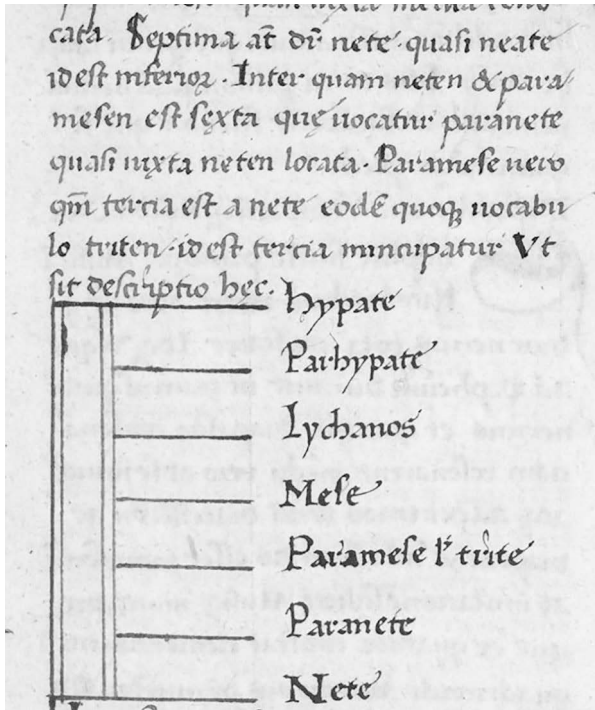 cata. Septima aū dr̄ nete quasi neate
id est inferior. Inter quam neten & para
mesen est sexta que uocatur paranete
quasi iuxta neten locata. Paramese uero
qm̄ tercia est a nete eodē quoq uocabu
lo triten id est tercia nuncupatur Vt
sit descriptio hec.
hypate
Parhypate
Lychanos
Mese
Paramese ł trite
Paranete
Nete